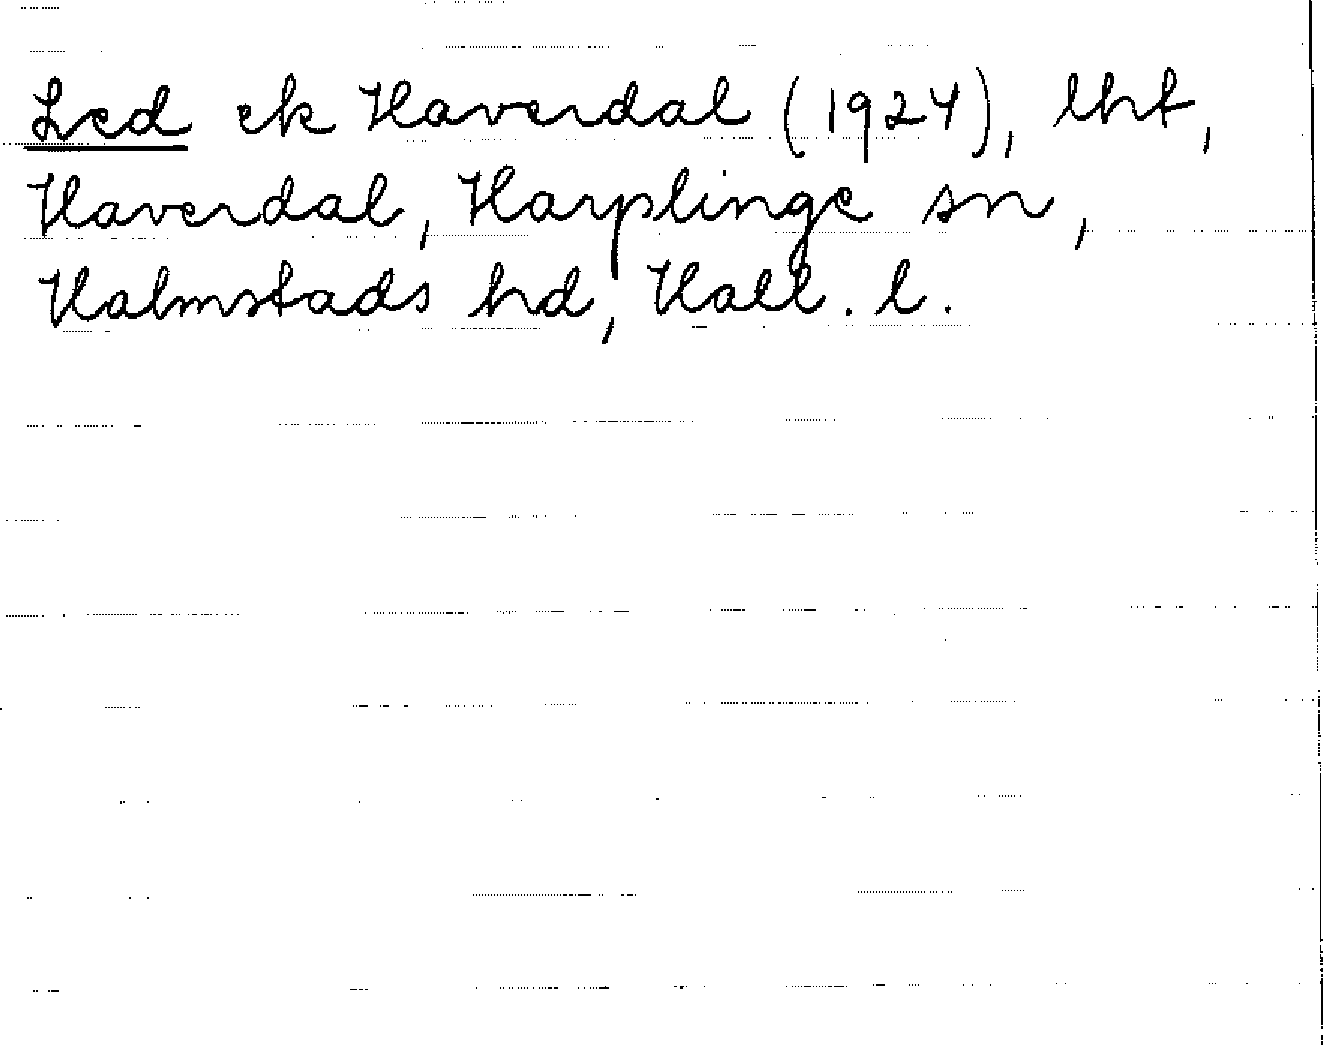 Led ek Haverdal (1924), lht,
Haverdal, Harplinge sn,
Halmstads hd, Hall. l.